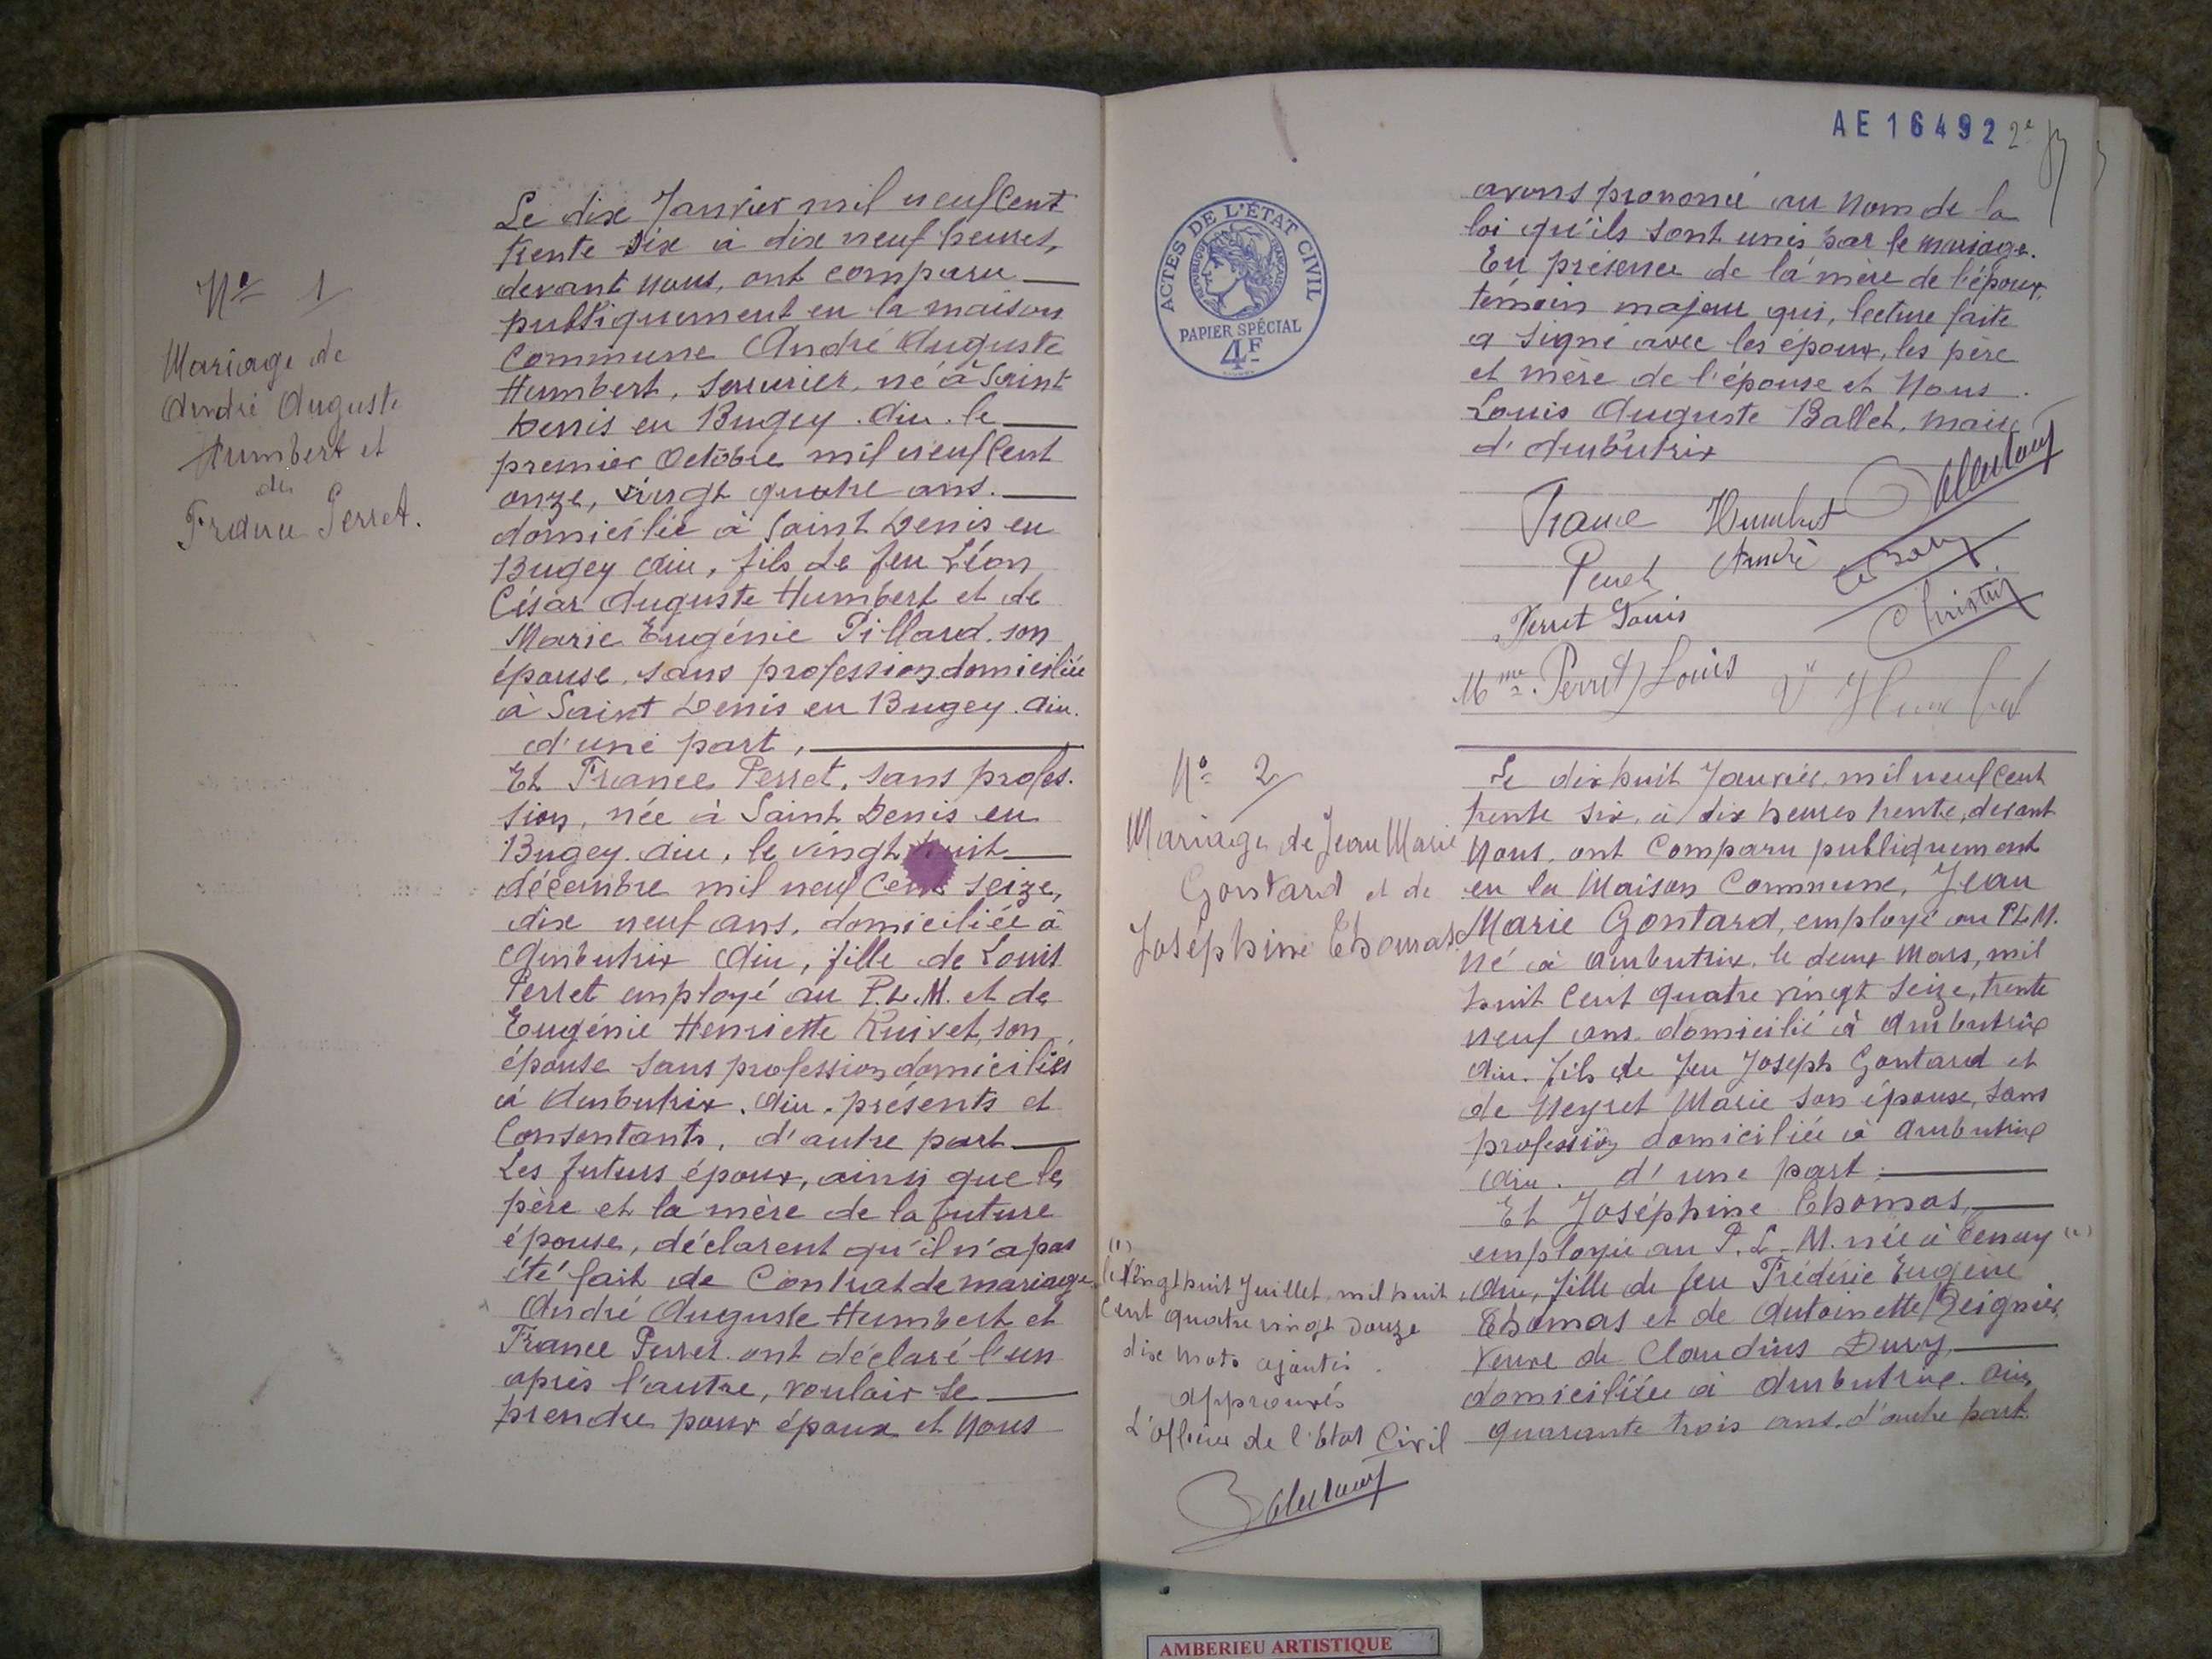 N° 1
Mariage de
André Auguste
Humbert et
de
France Perret.
Le dix Janvier mil neuf Cent
trente six à dix neuf heures,
devant nous, ont comparu
publiquement en la maison
Commune André Auguste
Humbert, serrurier, né à Saint
Denis en Bugey. Ain. le
premier Octobre mil neuf Cent
onze, vingt quatre ans.
domicilié à Saint Denis en
Bugey Ain, fils de feu Léon
César Auguste Humbert et de
Marie Eugénie Pillard, son
épouse, sans profession domiciliée
à Saint Denis en Bugey. Ain.
d'une part,
Et France Perret, sans profes.
sion, née à Saint Denis en
Bugey. Ain, le vingt huit
décembre mil neuf Cent seize,
dix neuf ans, domiciliée à
Ambutrix Ain, fille de Louis
Perret employé au P.L.M. et de
Eugénie Henriette Ruivet, son
épouse sans profession domiciliés
à Ambutrix. Ain. présents et
Consentants, d'autre part
Les futurs époux, ainsi que le
père et la mère de la future
épouse, déclarent qu'il n'a pas
été fait de Contrat de mariage.
André Auguste Humbert et
France Perret ont déclaré l'un
après l'autre, vouloir se
prendre pour époux et Nous
AE16492 2e
ACTES DE L'ÉTAT CIVIL
RÉPUBLIQUE FRANÇAISE
PAPIER SPÉCIAL
4F
avons prononcé au Nom de la
loi qu'ils sont unis par le mariage.
En présence de la mère de l'époux,
témoin majeur qui, lecture faite
a signé avec les époux, les père
et mère de l'épouse et Nous
Louis Auguste Ballet, maire
d'Ambutrix
France Humbert
Perret André
Perret Louis
Christin
Mme Perret Louis Ve Humbert
N° 2
Mariage de Jean Marie
Gontard et de
Joséphine Thomas
Le dix huit Janvier, mil neuf Cent
trente six, à dix heures trente, devant
Nous, ont Comparu publiquement
en la Maison Commune, Jean
Marie Gontard, employé au P.L.M.
né à Ambutrix, le deux Mars, mil
huit Cent Quatre vingt Seize, trente
neuf ans domicilié à Ambutrix
Ain. fils de feu Joseph Gontard et
de Neyret Marie son épouse, sans
profession domiciliée à Ambutrix
Ain. d'une part;
Et Joséphine Thomas,
employée au P.L.M. née à Tenay (1)
Ain, fille de feu Frédéric Eugène
Thomas et de Antoinette Reignier,
Veuve de Claudius Dury,
domiciliée à Ambutrix. Ain
quarante trois ans. d'autre part.
(1)
le Vingt huit Juillet mil huit
Cent quatre vingt Douze
dix mots ajoutés
approuvés
L'Officier de l'État Civil
AMBERIEU ARTISTIQUE